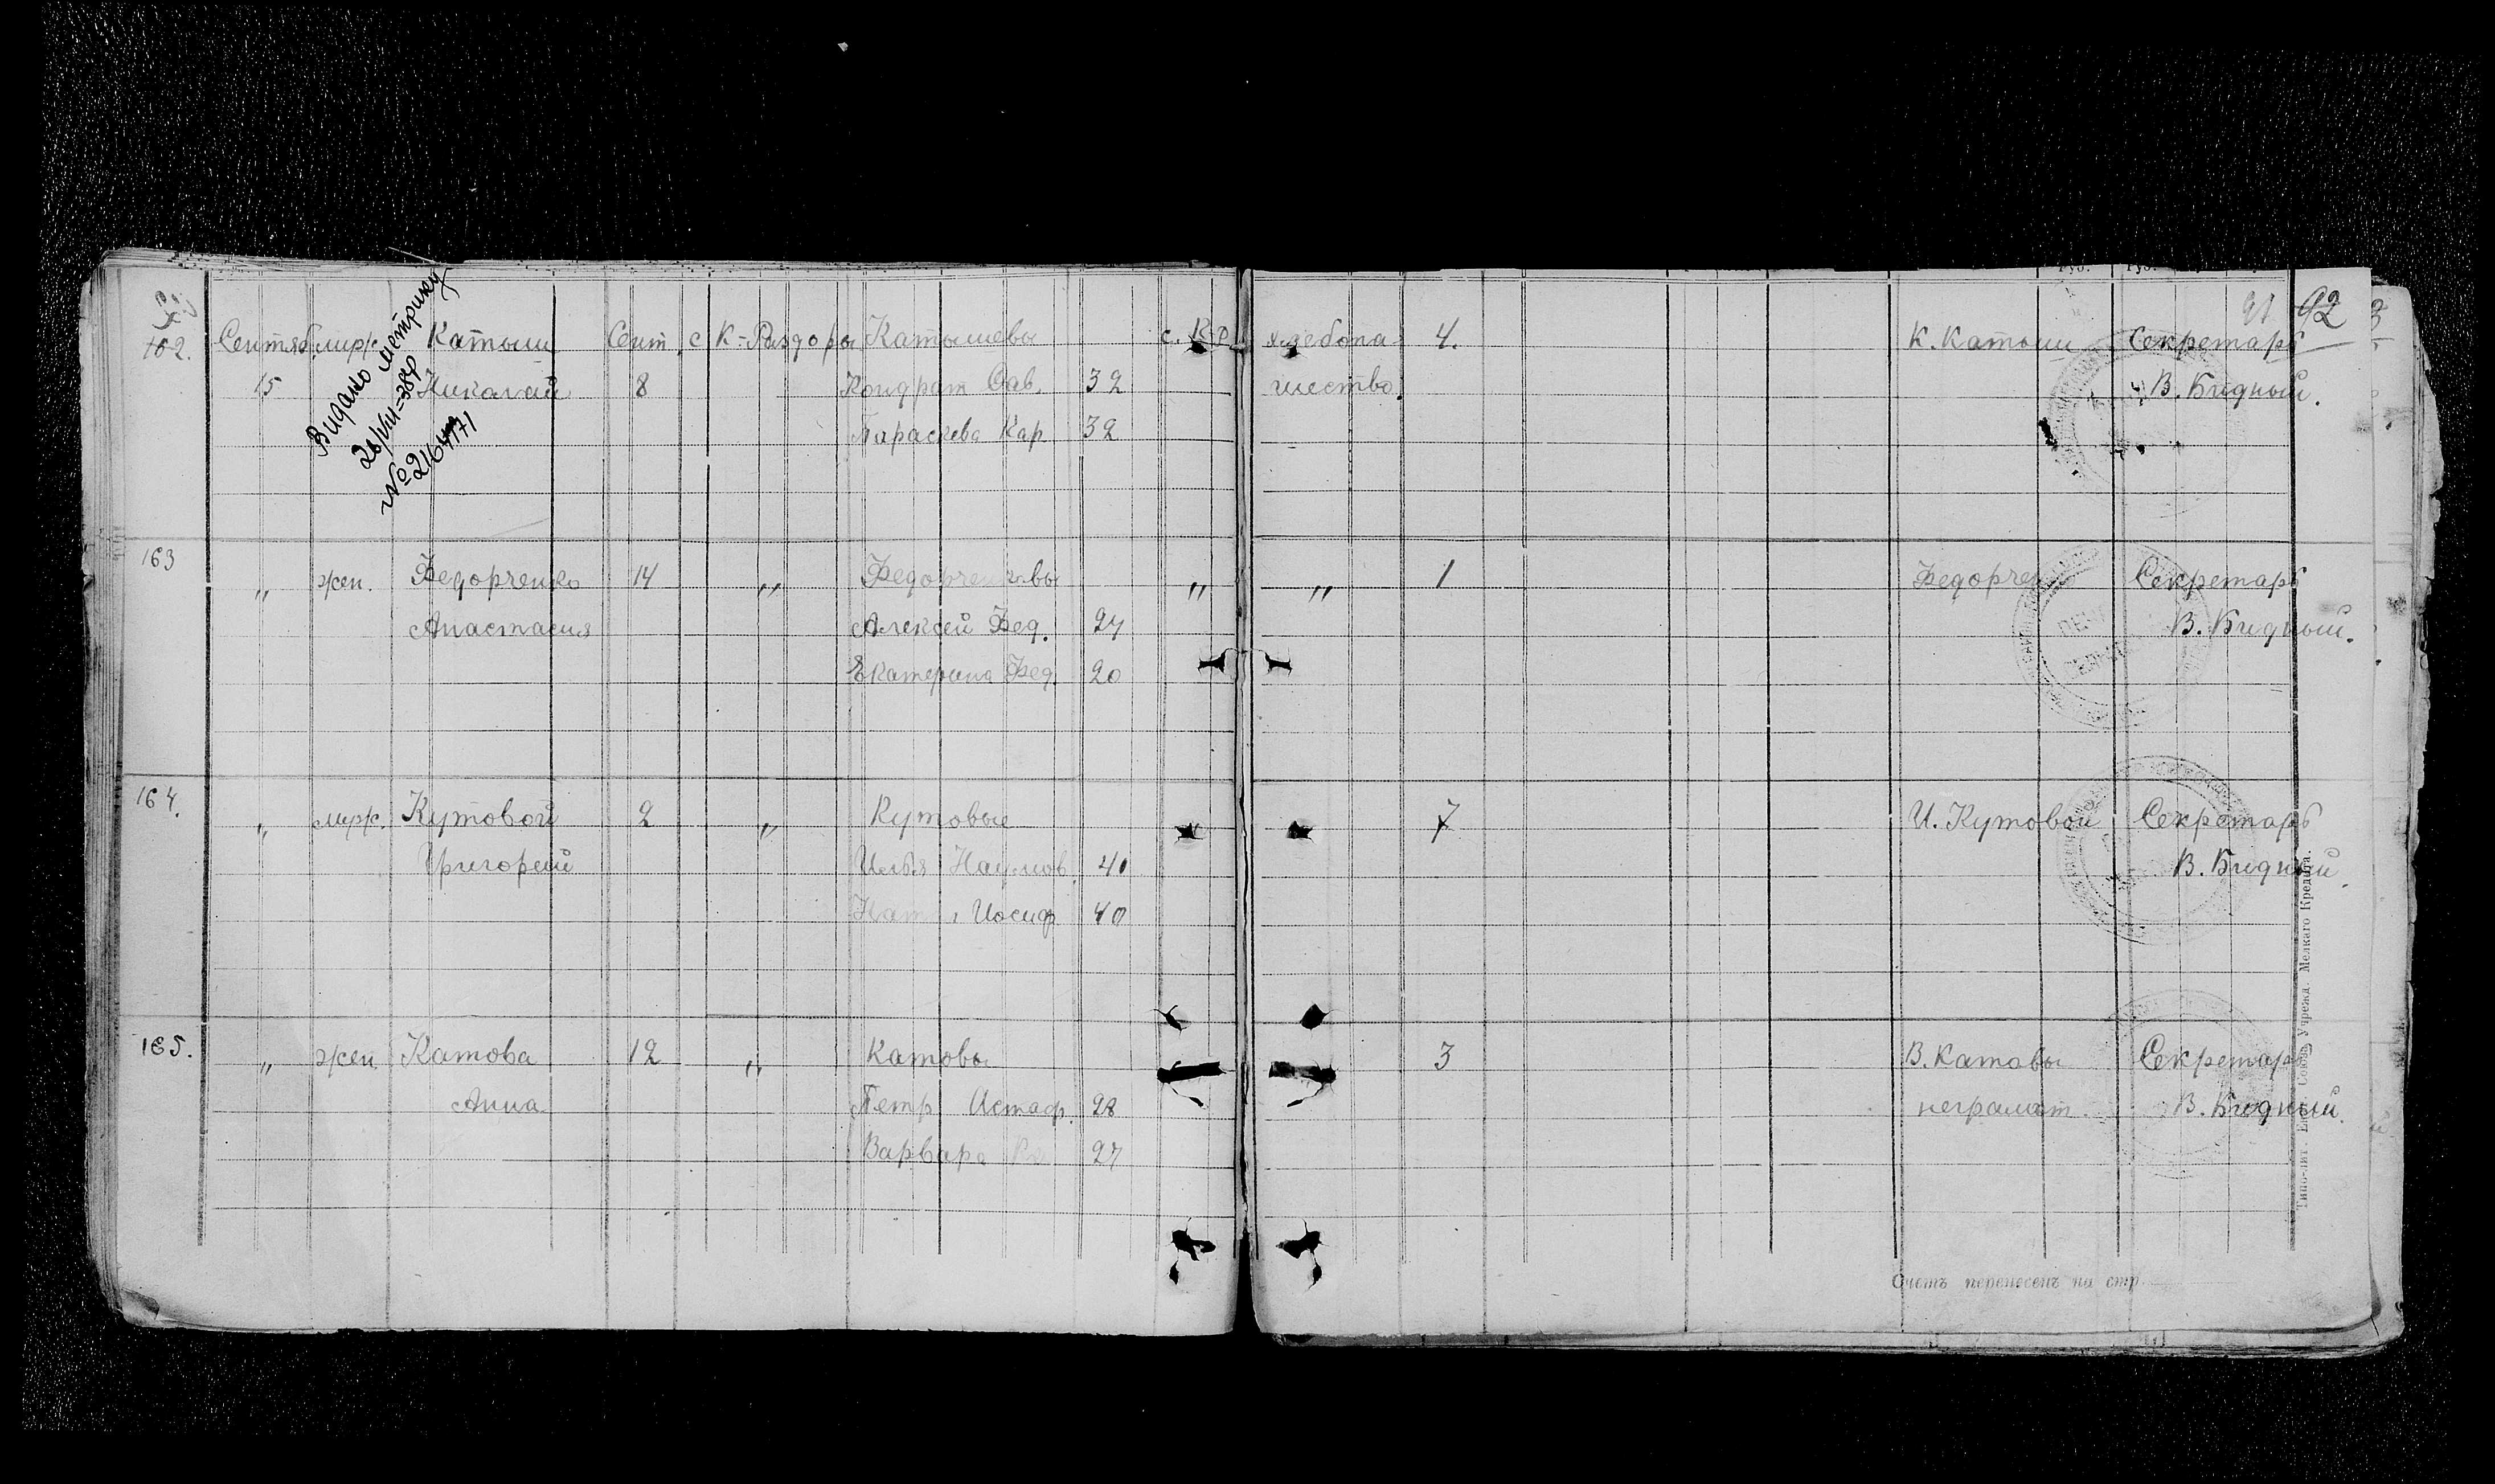 91 92
162. Сентяб. муж. Катыш Сент. с. К-Раздоры Катышевы с. К-Р. хлебопа- 4. К. Катыш Секретарь
15 Николай 8 Кондрат Сав. 32 шество. В. Бидный.
Параскева Кар. 32
Видано метрику
28/VII-38р
№ 216
163
„ жен. Федорченко 14 „ Федорченковы „ „ 1 Федорчен Секретарь
Анастасия Алексей Фед. 27 В. Бидный.
Екатерина Фед. 20
164.
„ муж. Кутовой 2 „ Кутовые 7 И. Кутовой Секретарь
Григорий Илья Наумов. 40 В. Бидный.
Иосиф. 40
165. „ жен. Катова 12 „ Катовы 3 В. Катовы Секретарь
Анна Петр Астаф. 28 неграмот. В. Бидный.
Варвара 27
Счетъ перенесенъ на стр.
Типо-лит. Екат. Союза Учрежд. Мелкаго Кредита.